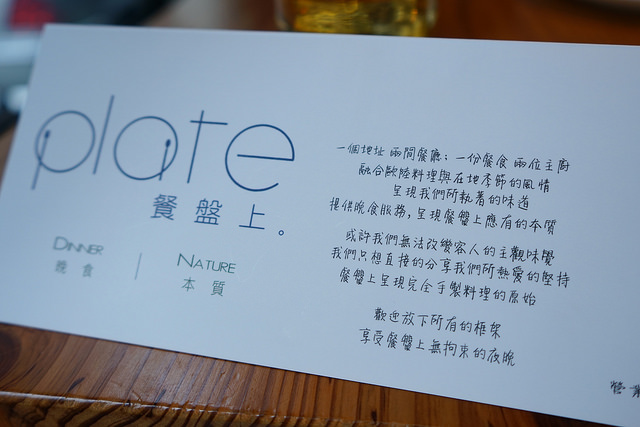 plate
餐盤上。
DINNER
晚食
NATURE
本質
一個地址 兩間餐廳；一份餐食 兩位主廚
融合歐陸料理與在地季節的風情
呈現我們所執著的味道
提供晚食服務，呈現餐盤上應有的本質
或許我們無法改變客人的主觀味覺
我們只想直接的分享我們所熱愛的堅持
餐盤上呈現完全手製料理的原始
歡迎放下所有的框架
享受餐盤上無拘束的夜晚
營業